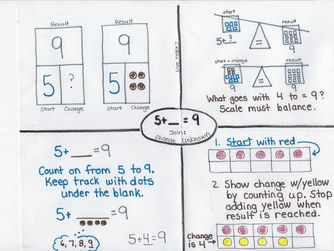 Result
9
5 ?
Start Change
Result
9
5
Start Change
start
5+?
result
9
=
start + change
result
9
=
9
What goes with 4 to = 9?
Scale must balance.
5+__=9
Join:
Change Unknown
5+ __ =9
Count on from 5 to 9.
Keep track with dots
under the blank.
5+ __ =9
6, 7, 8, 9
5+4=9
1. Start with red
2. Show change w/yellow
by counting up. Stop
adding yellow when
result is reached.
Change
is 4